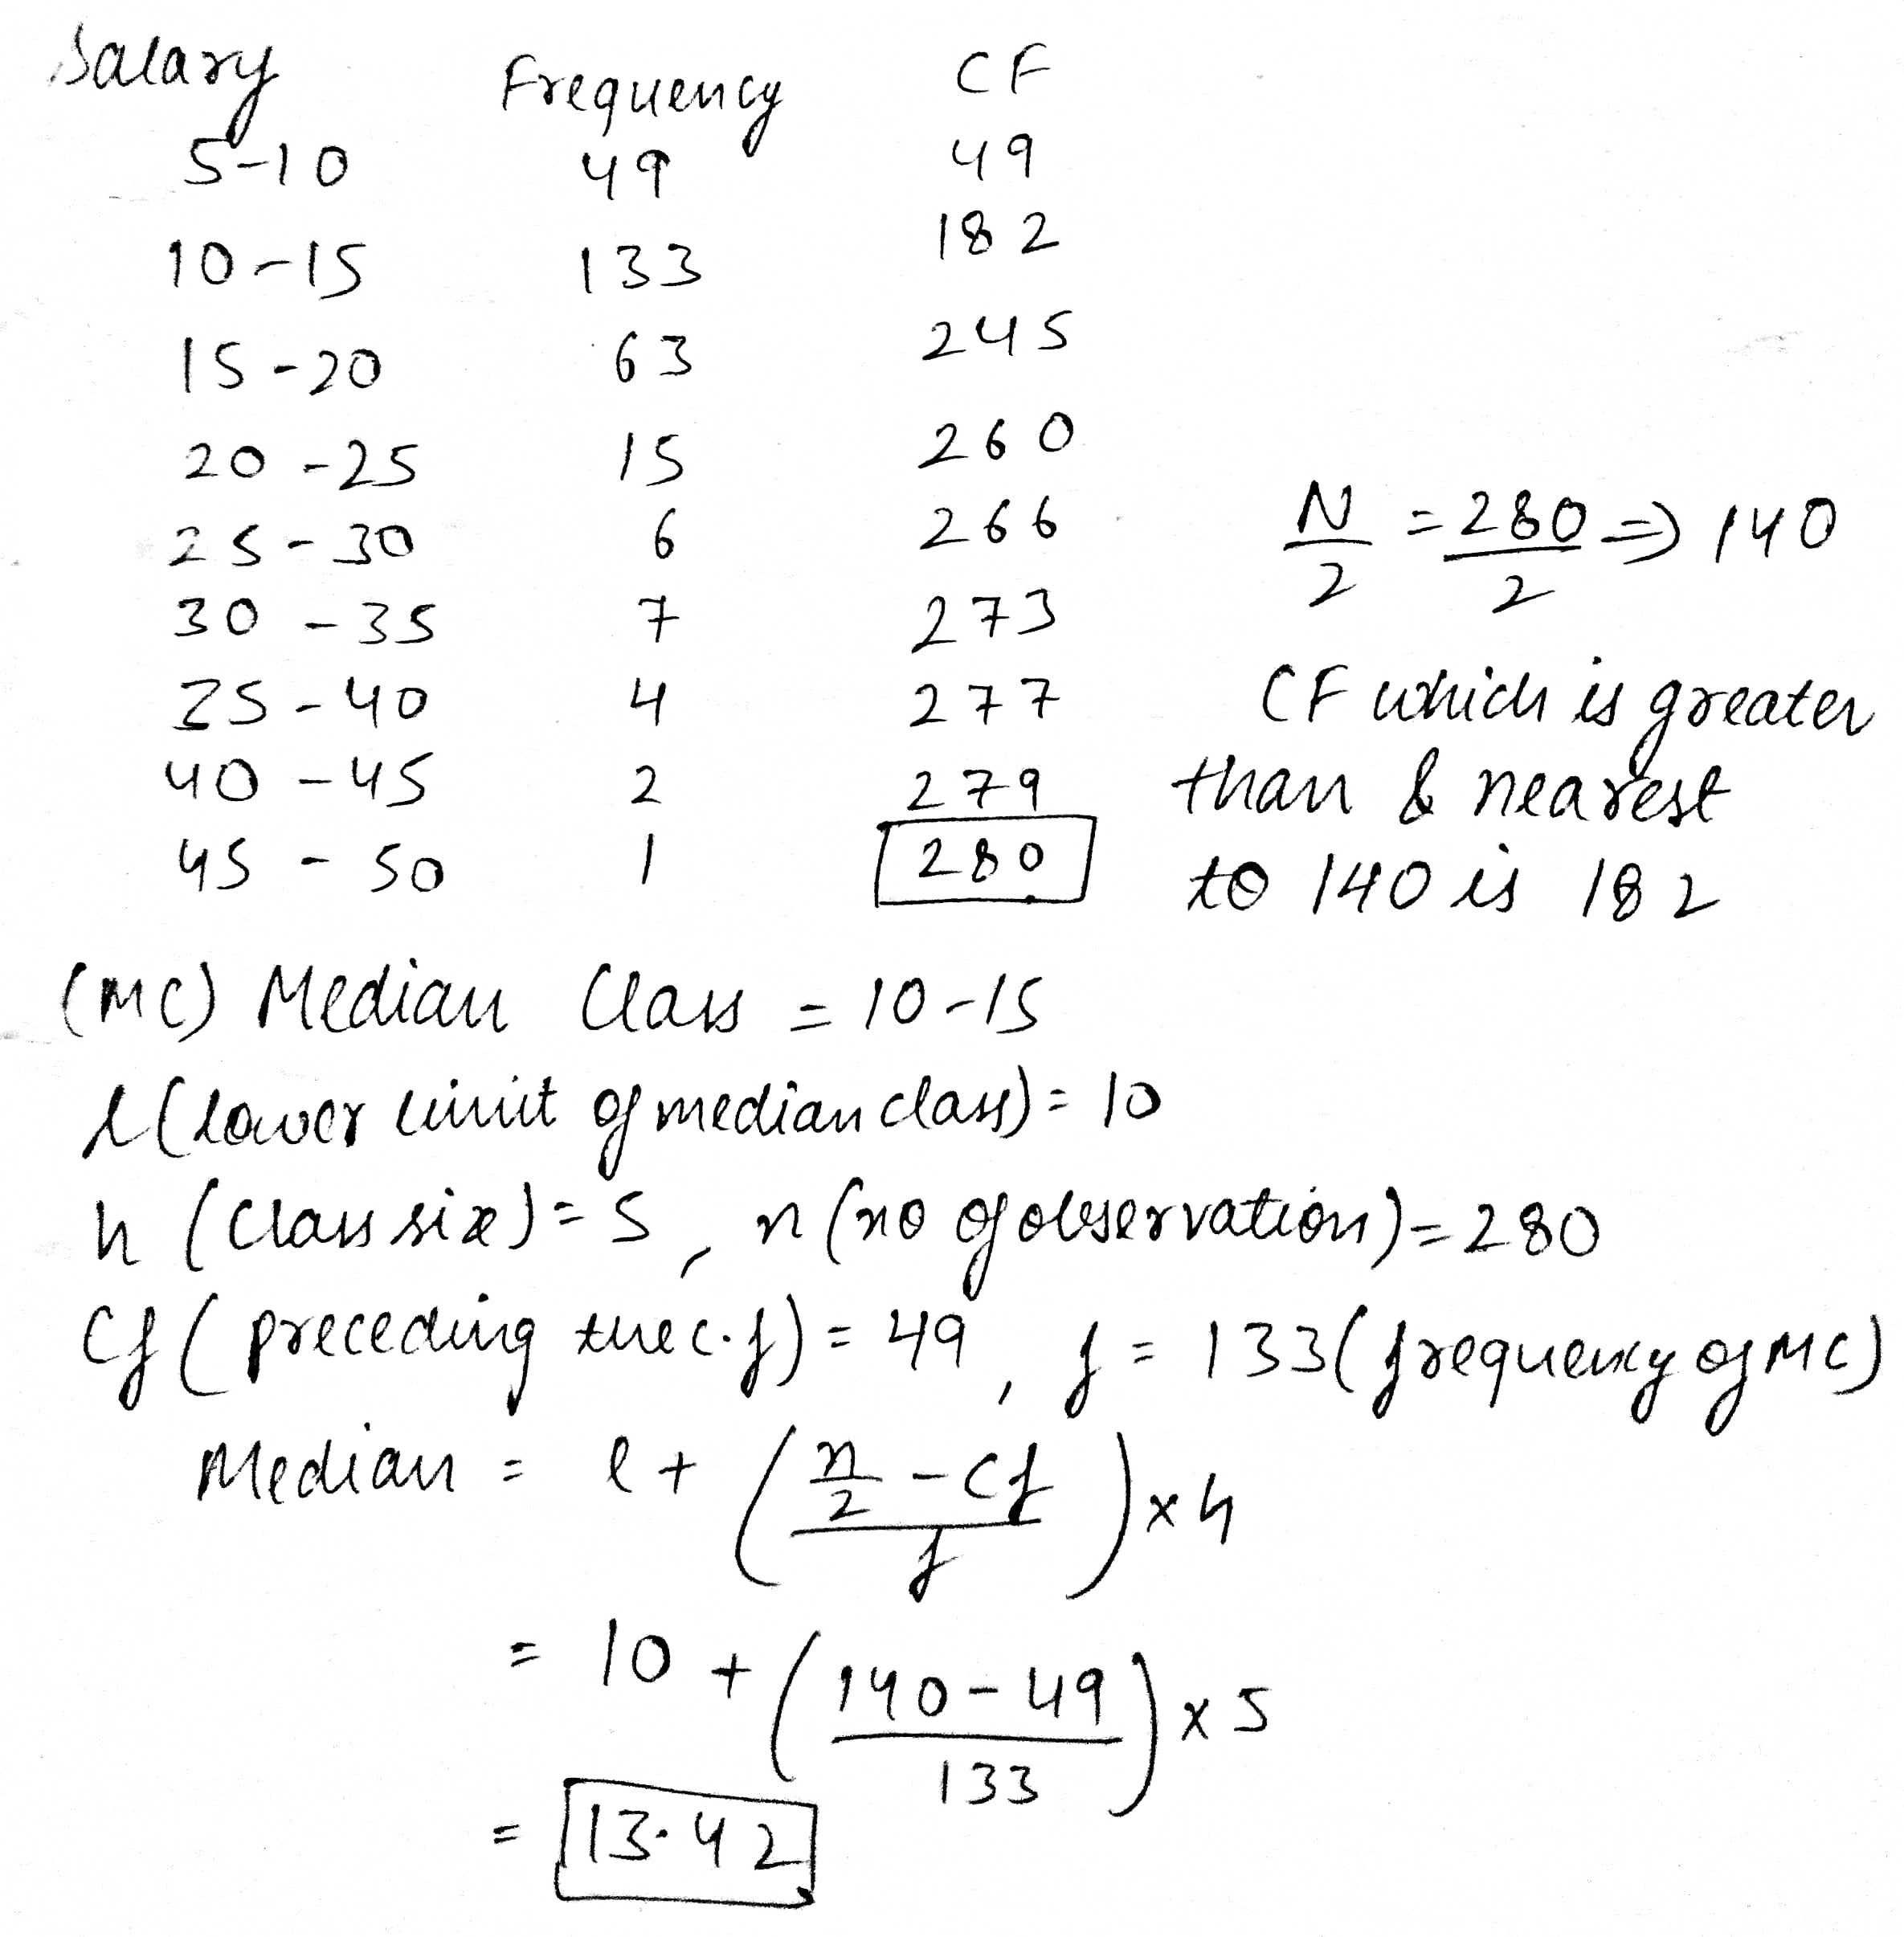 Salary Frequency CF
5-10 49 49
10-15 133 182
15-20 63 245
20-25 15 260
25-30 6 266
30-35 7 273
35-40 4 277
40-45 2 279
45-50 1 280
N/2 = 280/2 => 140
CF which is greater
than & nearest
to 140 is 182
(MC) Median Class = 10-15
l (lower limit of median class) = 10
h (class size) = 5, n (no of observation) = 280
Cf (preceding the c.f) = 49, f = 133 (frequency of MC)
Median = l + ((n/2 - cf)/f) × h
= 10 + ((140-49)/133) × 5
= 13.42